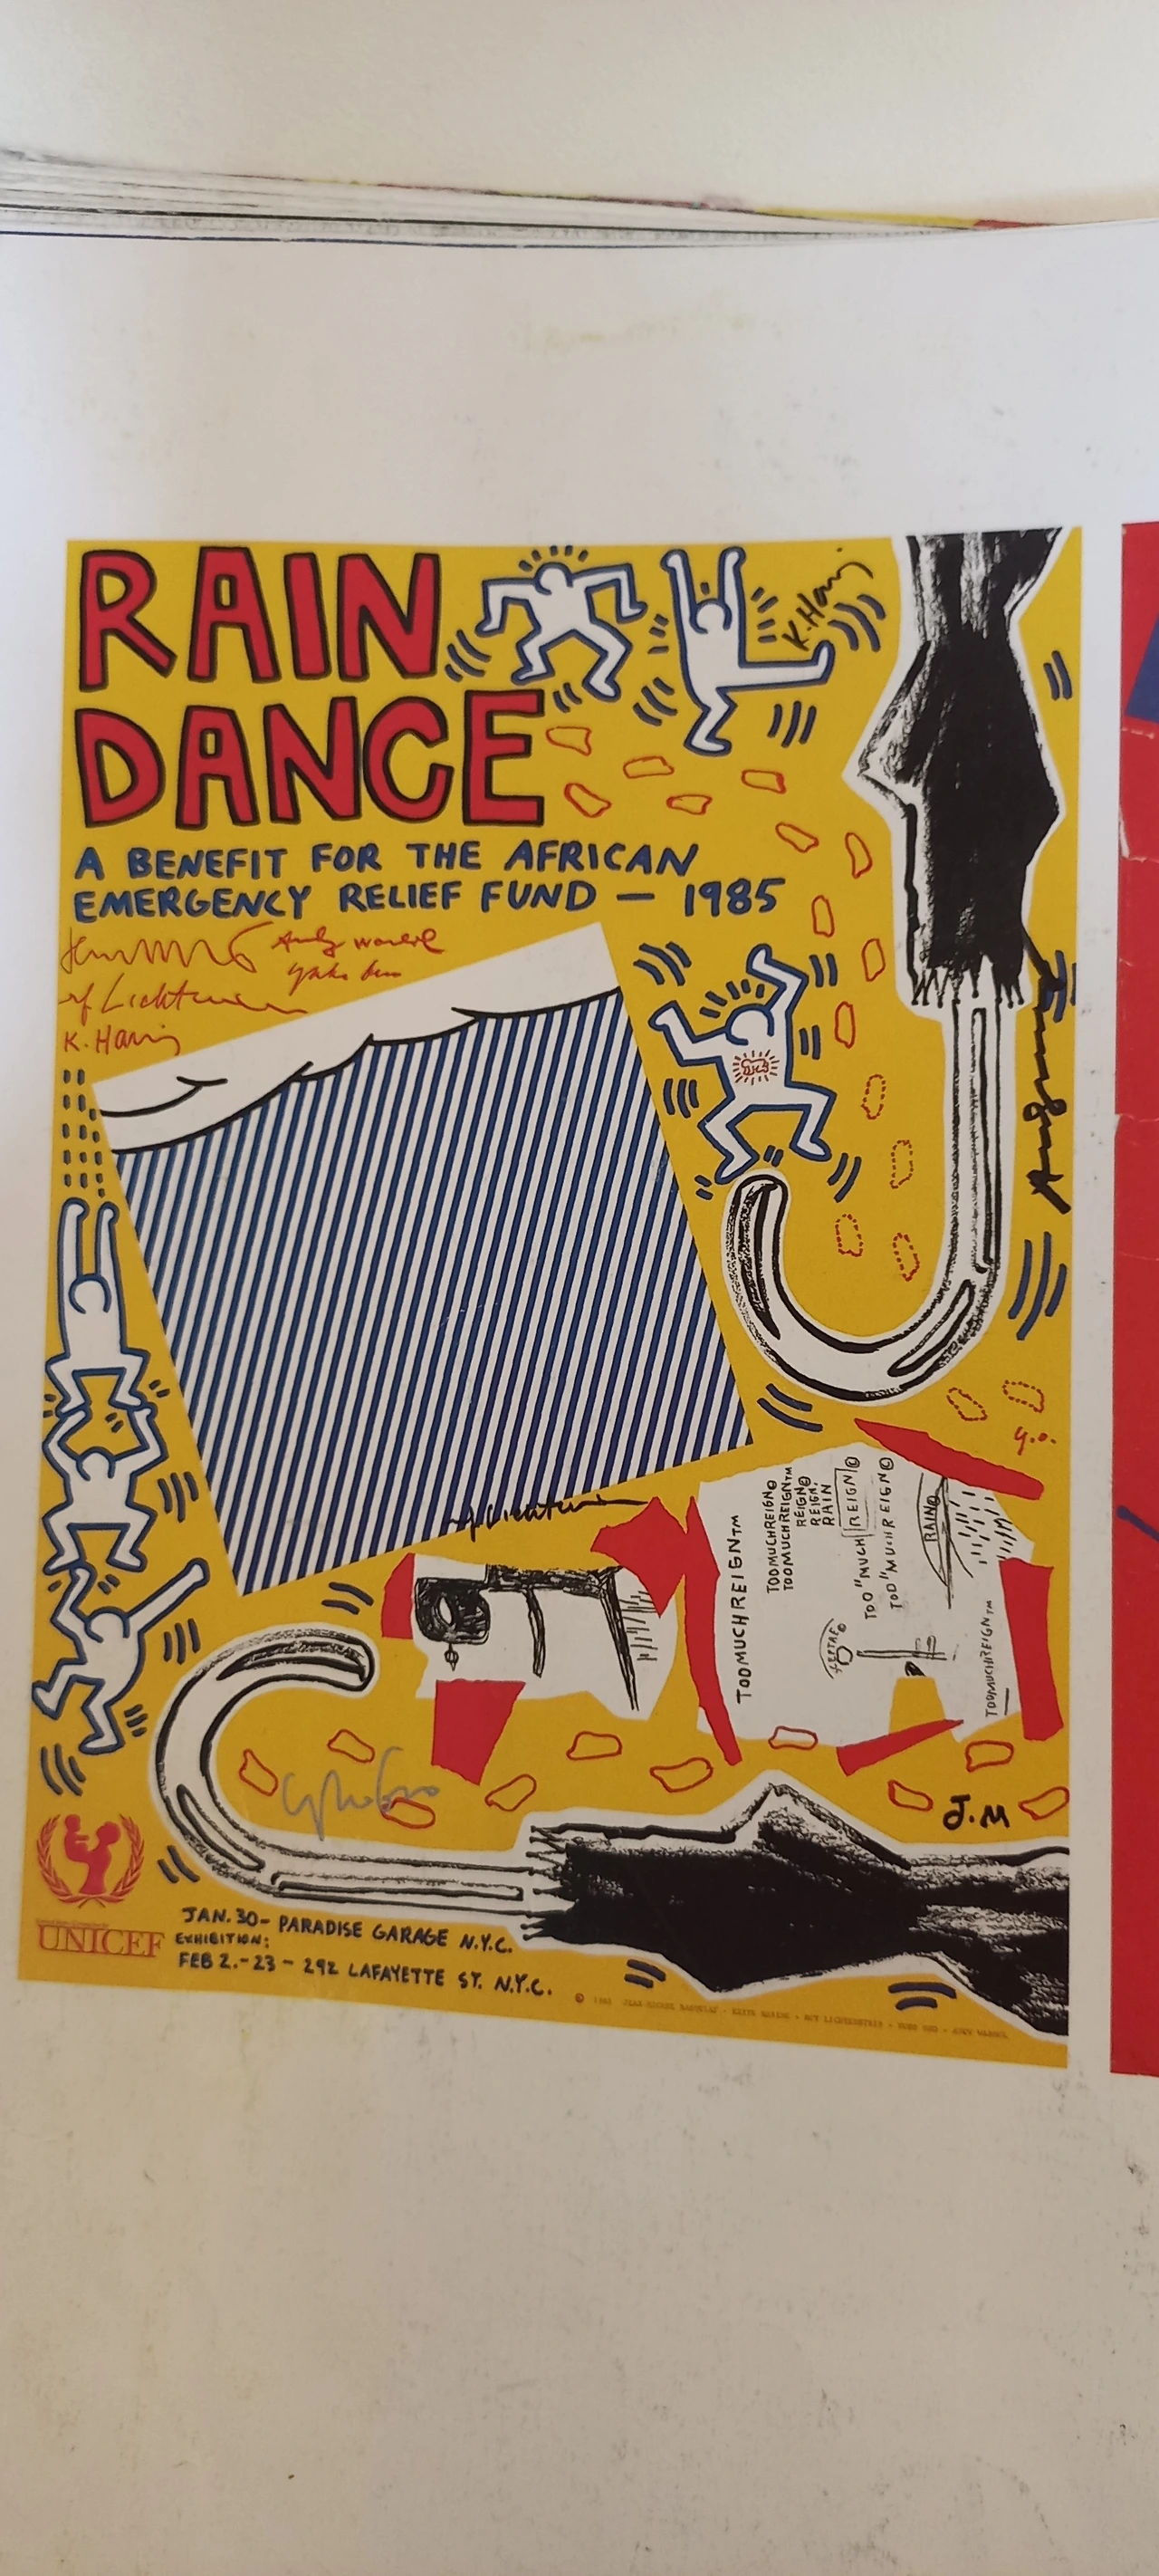 RAIN
DANCE
A BENEFIT FOR THE AFRICAN
EMERGENCY RELIEF FUND — 1985
Andy Warhol
yoko ono
rf Lichtenstein
K. Haring
K. Haring
Andy Warhol
rf Lichtenstein
y.o.
TOOMUCHREIGN™
TOOMUCHREIGN©
TOOMUCHREIGN™
REIGN©
REIGN,
RAIN
TOO"MUCH REIGN©
TOO"MUCH REIGN©
RAIN©
TOOMUCHREIGN™
J.M
UNICEF
JAN. 30 - PARADISE GARAGE N.Y.C.
EXHIBITION:
FEB 2.-23 - 292 LAFAYETTE ST. N.Y.C.
© 1985 JEAN-MICHEL BASQUIAT - KEITH HARING - ROY LICHTENSTEIN - YOKO ONO - ANDY WARHOL